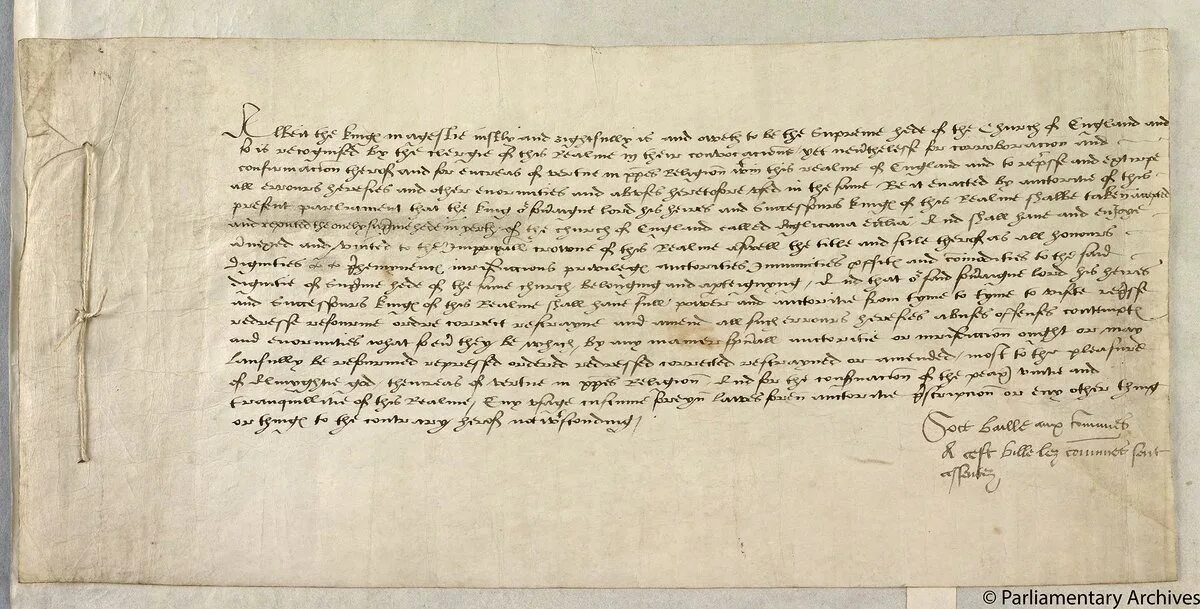 Albeit the kynges mageste justly and rightfully is and oweth to be the supreme hede of the Church of England and
so is recognised by the clergie of this Realme in their convocacions / yet nevtheless for corroboracion and
confirmacion therof and for encreas of vertue in xpes Religion wtin this realme of England and to represse and extirpe
all errours heresies and other enormities and abuses heretofore used in the same Be it enacted by auctorite of this
present parliament that the king our soveraigne lord his heires and successours kynges of this Realme shalbe taken accepted
and reputed the onely supreme hede in erthe of the church of England called Anglicana ecclesia / And shall have and enjoye
annexed and united to the Imperyall crowne of this Realme aswell the title and stile therof as all honours
Dignities preheminences jurisdiccions privileges auctorities Immunities profitis and comodities to the said
dignitie of supreme hede of the same church belonging and apperteynyng / And that our said soveraigne lord his heires
and successours kynges of this Realme shall have full power and auctorite from tyme to tyme to visite represse
redresse refourme ordre correct restrayne and amend all such errours heresies abuses offenses contemptes
and enormities what so ever they be which by any maner spirituall auctoritie or jurisdiccion ought or may
laufully be refourmed repressed ordered redressed corrected restrayned or amended / most to the pleasure
of Almyghtie god thencreas of vertue in xpes Religion And for the conservacion of the peax unitie and
tranquillitie of this Realme / Any usage custume foreyn lawes foreyn auctoritie prescripcion or any other thing
or thinges to the contrary herof notwithstonding /
Soit baille aux communes
A ceste bille les communes sont
assentez
© Parliamentary Archives